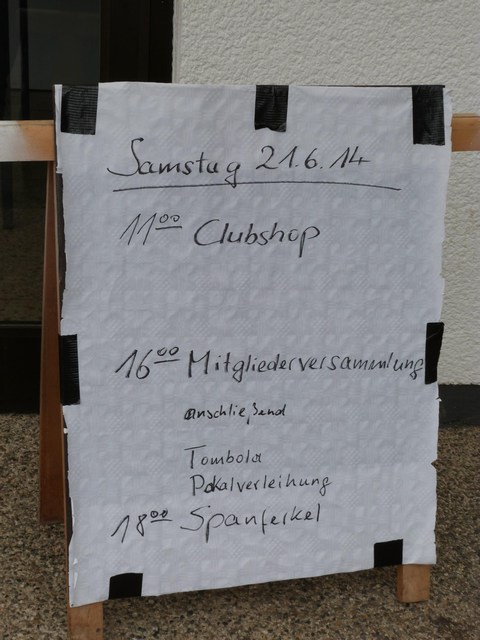 Samstag 21.6.14
11⁰⁰ Clubshop
16⁰⁰ Mitgliederversammlung
anschließend
Tombola
Pokalverleihung
18⁰⁰ Spanferkel